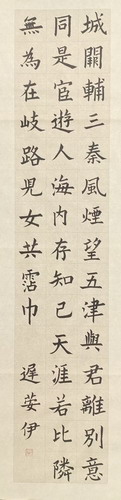 城闕輔三秦風煙望五津與君離別意
同是宦遊人海内存知己天涯若比隣
無為在岐路兒女共霑巾 遲伊